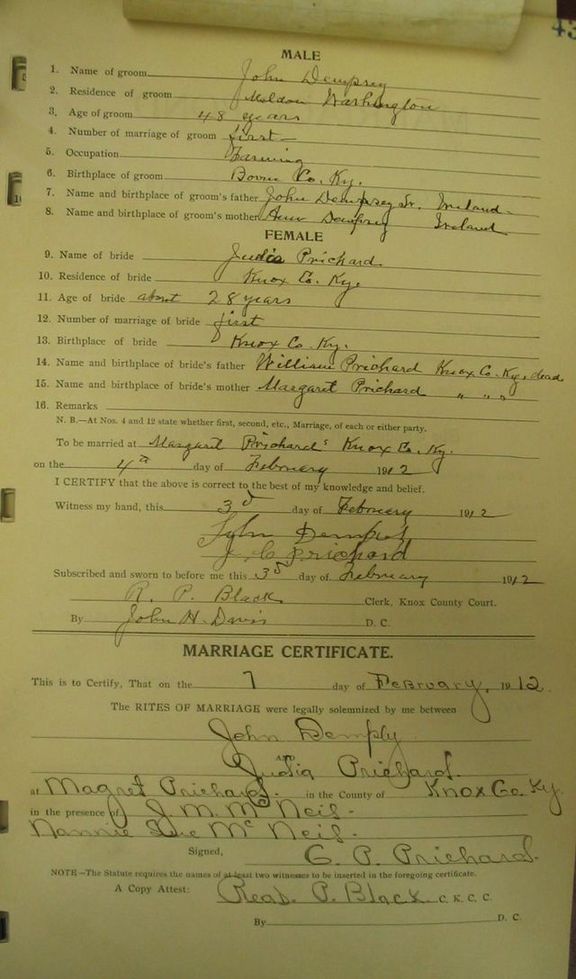 43
MALE
1. Name of groom John Dempsey
2. Residence of groom Meldon Washington
3. Age of groom 48 years
4. Number of marriage of groom first
5. Occupation Farming
6. Birthplace of groom Boone Co. Ky.
7. Name and birthplace of groom's father John Dempsey Sr. Ireland
8. Name and birthplace of groom's mother Ann Dempsey Ireland
FEMALE
9. Name of bride Judia Prichard
10. Residence of bride Knox Co. Ky.
11. Age of bride about 28 years
12. Number of marriage of bride first
13. Birthplace of bride Knox Co. Ky.
14. Name and birthplace of bride's father William Prichard Knox Co. Ky, dead
15. Name and birthplace of bride's mother Margaret Prichard " " "
16. Remarks
N. B.—At Nos. 4 and 12 state whether first, second, etc., Marriage, of each or either party.
To be married at Margaret Prichards Knox Co. Ky.
on the 4th day of February 1912
I CERTIFY that the above is correct to the best of my knowledge and belief.
Witness my hand, this 3d day of February 1912
John Dempsey
J. C. Prichard
Subscribed and sworn to before me this 3d day of February 1912
R. P. Black Clerk, Knox County Court.
By John H. Davis D. C.
MARRIAGE CERTIFICATE.
This is to Certify, That on the 7 day of February, 1912
The RITES OF MARRIAGE were legally solemnized by me between
John Demply
and
Judia Prichard.
at Magret Prichard. in the County of Knox Co. Ky
in the presence of J. M. McNeil-
Nannie Sue McNeil-
Signed, G. P. Prichard.
NOTE—The Statute requires the names of at least two witnesses to be inserted in the foregoing certificate.
A Copy Attest: Read P. Black C. K. C. C.
By D. C.